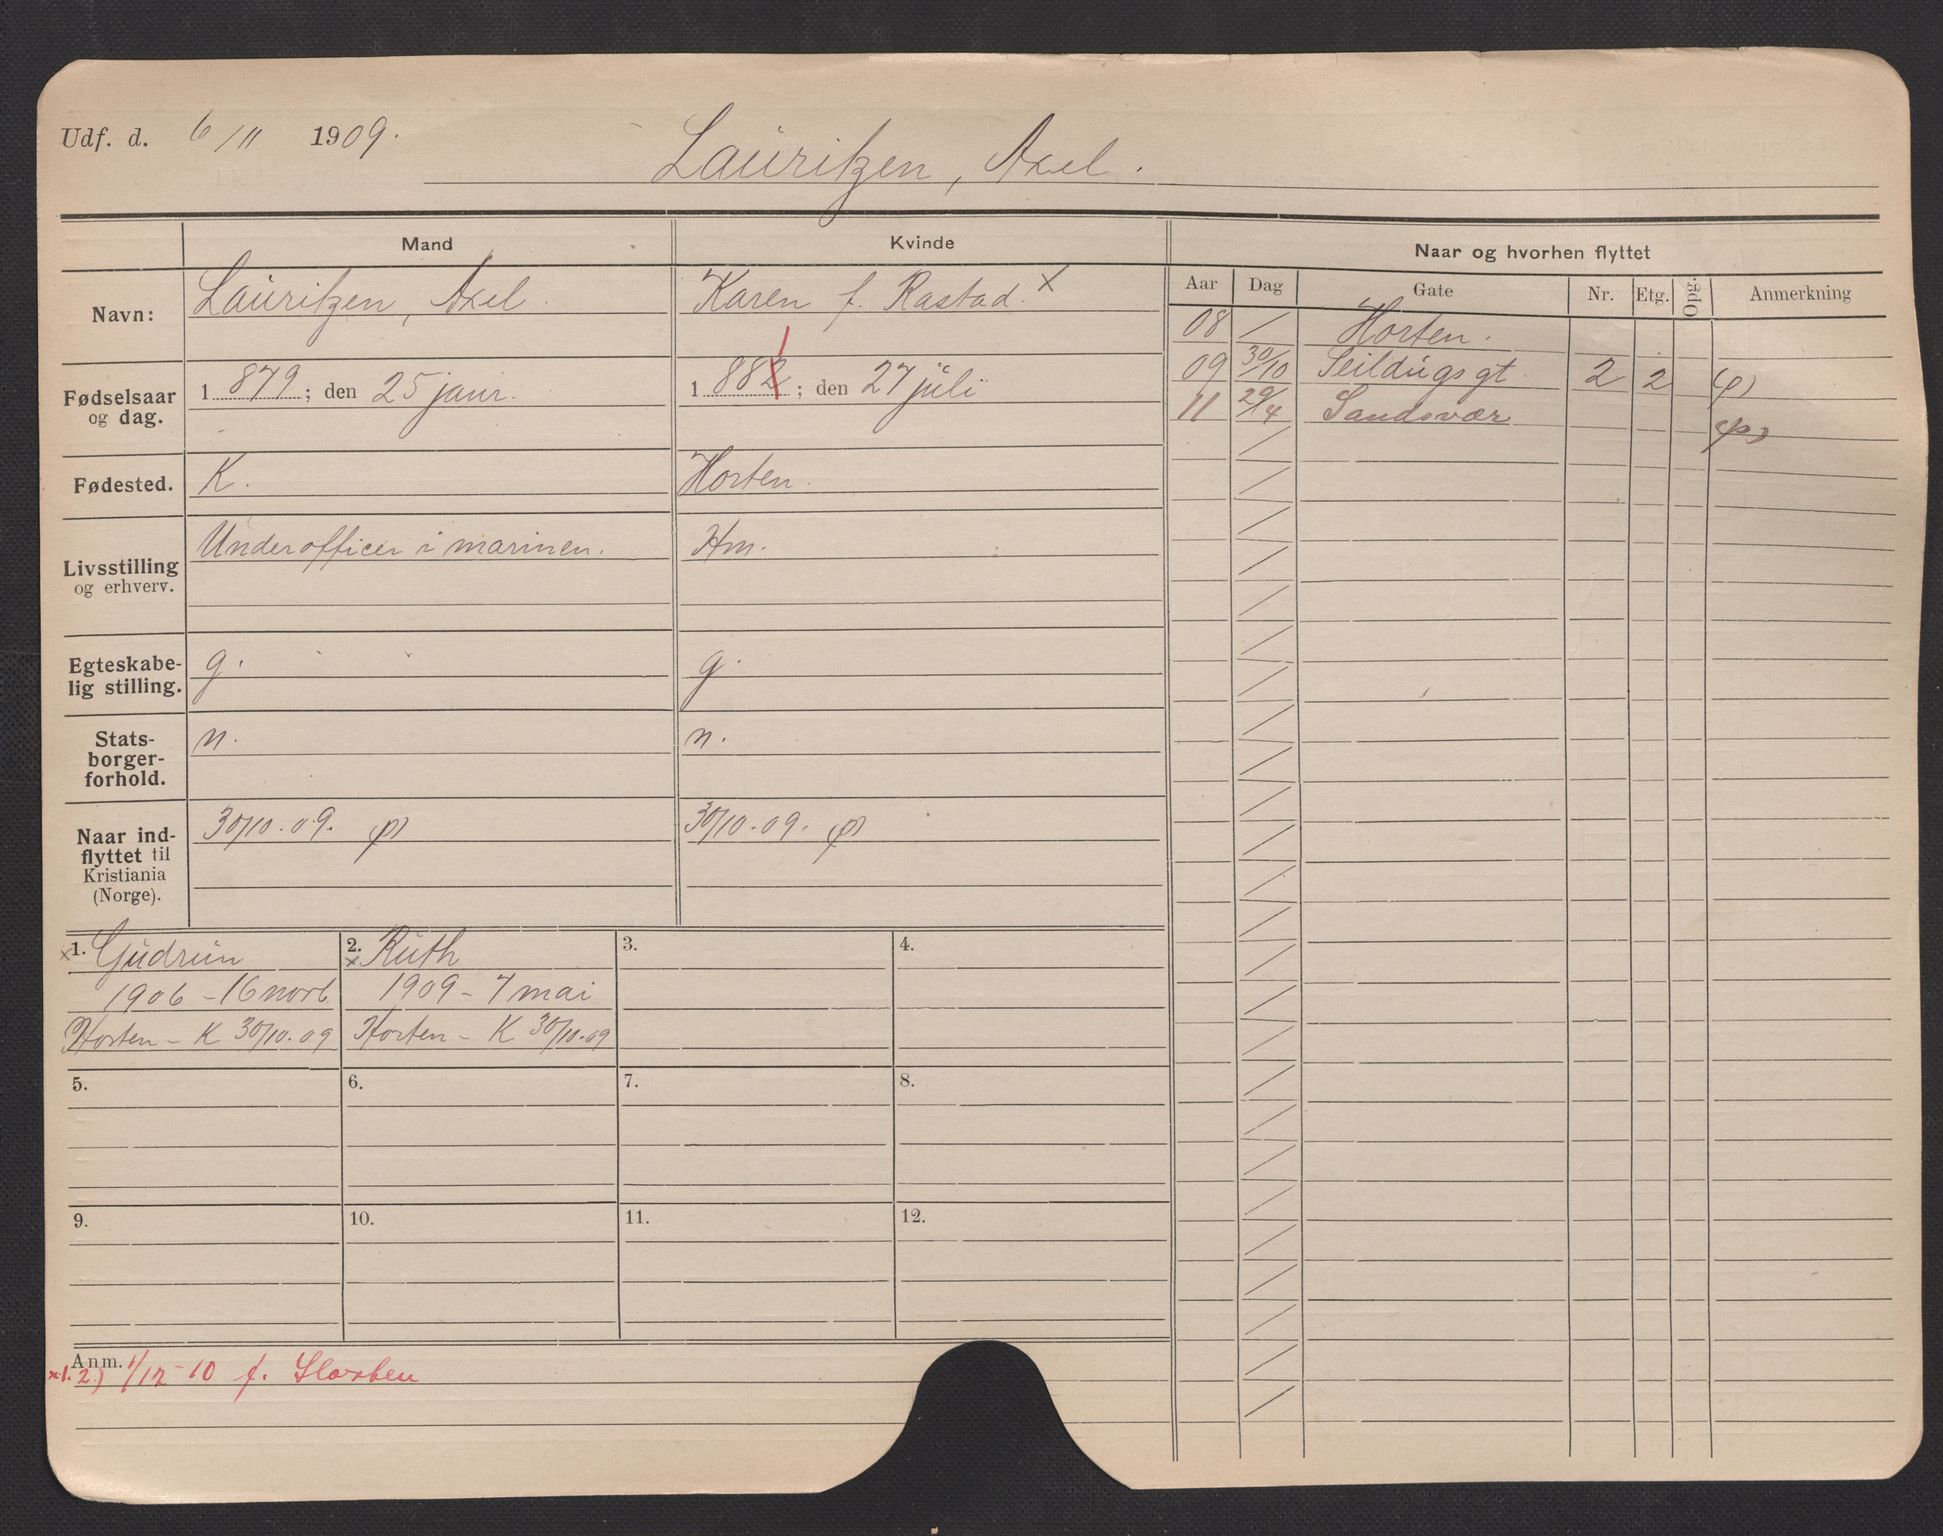 Udf. d. 6/11 1909.
Lauritzen, Axel.
Mand
Kvinde
Naar og hvorhen flyttet
Navn:
Lauritzen, Axel.
Karen f. Rastad. x
Aar Dag Gate Nr. Etg. Opg. Anmerkning
08 / Horten.
09 30/10 Seildugsgt. 2 2 (p)
11 29/4 Sandsvær (p)
Fødselsaar
og dag.
1 879 ; den 25 janr.
1
1 882 ; den 27 juli
Fødested.
K.
Horten.
Livsstilling
og erhverv.
Underofficer i marinen.
Hm.
Egteskabe-
lig stilling.
g.
g.
Stats-
borger-
forhold.
n.
n.
Naar ind-
flyttet til
Kristiania
(Norge).
30/10.09. (p)
30/10.09. (p)
x 1. Gudrun
1906 - 16 novb.
Horten - K 30/10.09
2. x Ruth
1909 - 7 mai
Horten - K 30/10.09
3.
4.
5.
6.
7.
8.
9.
10.
11.
12.
Anm.
x 1. 2) 1/12-10 f.